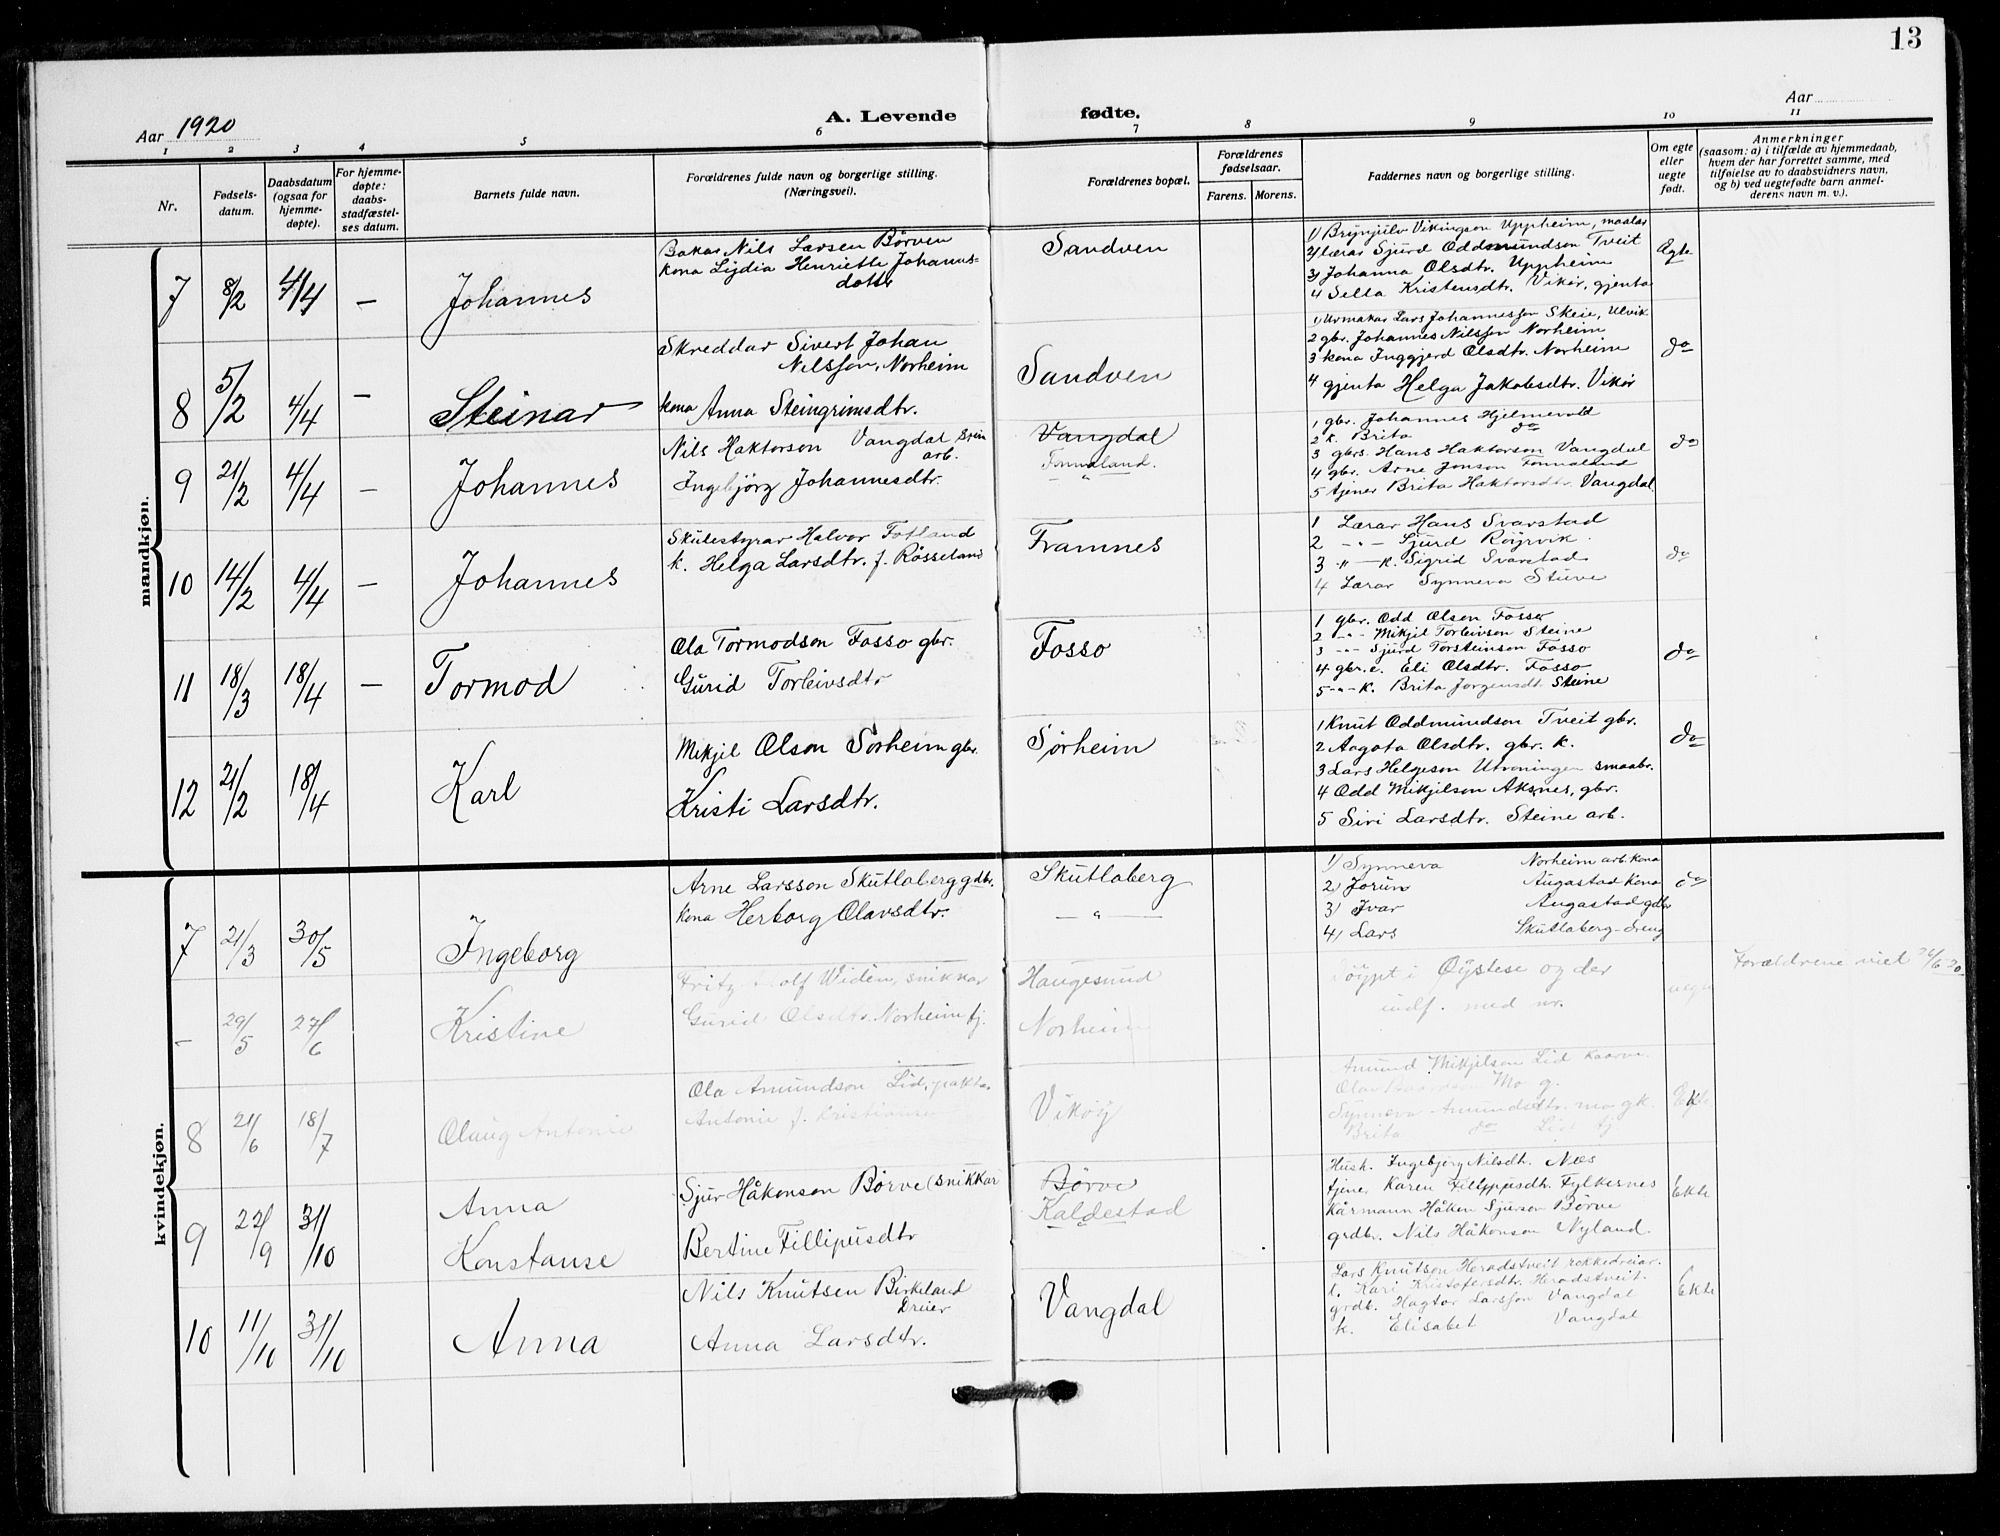 13
Aar 1920
A. Levende fødte.
Aar
1 2 3 4 5 6 7 8 9 10 11
Nr.
Fødsels-
datum.
Daabsdatum
(ogsaa for
hjemme-
døpte).
For hjemme-
døpte:
daabs-
stadfæstel-
ses datum.
Barnets fulde navn.
Forældrenes fulde navn og borgerlige stilling.
(Næringsvei).
Forældrenes bopæl.
Forældrenes
fødselsaar.
Farens. Morens.
Faddernes navn og borgerlige stilling.
Om egte
eller
uegte
født.
Anmerkninger
(saasom: a) i tilfælde av hjemmedaab,
hvem der har forrettet samme, med
tilføielse av to daabsvidners navn,
og b) ved uegtefødte barn anmel-
derens navn m. v.).
mandkjøn.
7 8/2 4/4 — Johannes
Bakar Nils Larsen Börven
kona Lydia Henriette Johannes-
dotter
Sandven
1) Brynjulv Vikingson Uppheim, maalar
2) lærar Sjurd Oddmundson Tveit
3) Johanna Olsdtr. Uppheim
4 Sella Kristensdtr. Vikør, gjenta
Ægte
8 5/2 4/4 — Steinar
Skreddar Sivert Johan
Nilsson, Norheim
kona Anna Steingrimsdtr.
Sandven
1) Urmakar Lars Johannesson Skeie, Ulvik
2 gbr. Johannes Nilsson Norheim
3 kona Inggjerd Olsdtr. Norheim
4 gjenta Helga Jakobsdtr. Vikør
do
9 21/2 4/4 — Johannes
Nils Haktorson Vangdal
arb.
Ingebjörg Johannesdtr.
Vangdal
— " —
1 gbr. Johannes Hjelmevold
2 k. Brita do
3 gbrs. Hans Haktorson Vangdal
4 gbr. Arne Jonson
5 tjener Brita Haktorsdtr. Vangdal
do
10 14/2 4/4 — Johannes
Skulestyrar Halvor Fotland
k. Helga Larsdtr. f. Røsseland
Framnes
1 Lærar Hans Svarstad
2 — " — Sjurd Röyrvik
3 — " — k. Sigrid Svarstad
4 Lærar Synneva Stuve
do
11 18/3 18/4 — Tormod
Ola Tormodson Fosso gbr.
Gurid Torleivsdtr
Fosso
1 gbr. Odd Olsen Fosso
2 — " — Mikjil Torleivson Steine
3 — " — Sjurd Torsteinson Fosso
4 gbr.e. Eli Olsdtr. Fosso
5 — " — k. Brita Jorgensdt. Steine
do
12 21/2 18/4 Karl
Mikjil Olson Sørheim gbr.
Kristi Larsdtr.
Sørheim
1 Knut Oddmundson Tveit gbr.
2 Aagota Olsdtr. gbr. k.
3 Lars Helgeson smaabr.
4 Odd Mikjilson Aksnes, gbr.
5 Siri Larsdtr. Steine arb.
do
kvindekjøn.
7 21/3 30/5 Ingeborg
Arne Larsson Skutlaberg gdbr.
kona Herborg Olavsdtr.
Skutlaberg
— " —
1) Synneva Norheim arb. kona
2) Jorun Augastad kona
3) Ivar Augastad gdbr
4) Lars Skutlaberg - dreng
do
- 29/5 27/6 Kristine
Fritz Widén, snikkar
Gurid Olsdtr. Norheim tj.
Haugesund
Norheim
Döypt i Öystese og der
indf. med nr.
uegte
Forældrene viet 26/6 20
8 21/6 18/7 Olaug Antonie
Ola Amundson Lid,
Antonie f. Kristiansen
Vikøy
Amund Mikjelson Lid
Mo g.
Synneva Amundsdtr. Mo gk.
Brita do Lid tj
Ekte
9 22/9 31/10 Anna
Konstanse
Sjur Håkonson Börve (snikkar
Bertine Fillipusdtr
Börve
Kaldestad
Hush. Ingebjørg Nilsdtr. Næs
tjene. Karen Fillippusdtr. Fylkesnes
Kårmann Håken Sjurson Börve
grdbr. Nils Håkonson Nyland.
Ekte
10 11/10 31/10 Anna
Nils Knutsen Birkeland
Dreier
Anna Larsdtr.
Vangdal
Lars Knutson Heradstveit rokkedreiar.
t. Kari Kristofersdtr. Heradstveit.
grdb. Hagtor Larsson Vangdal
k. Elisabet Vangdal
Ekte